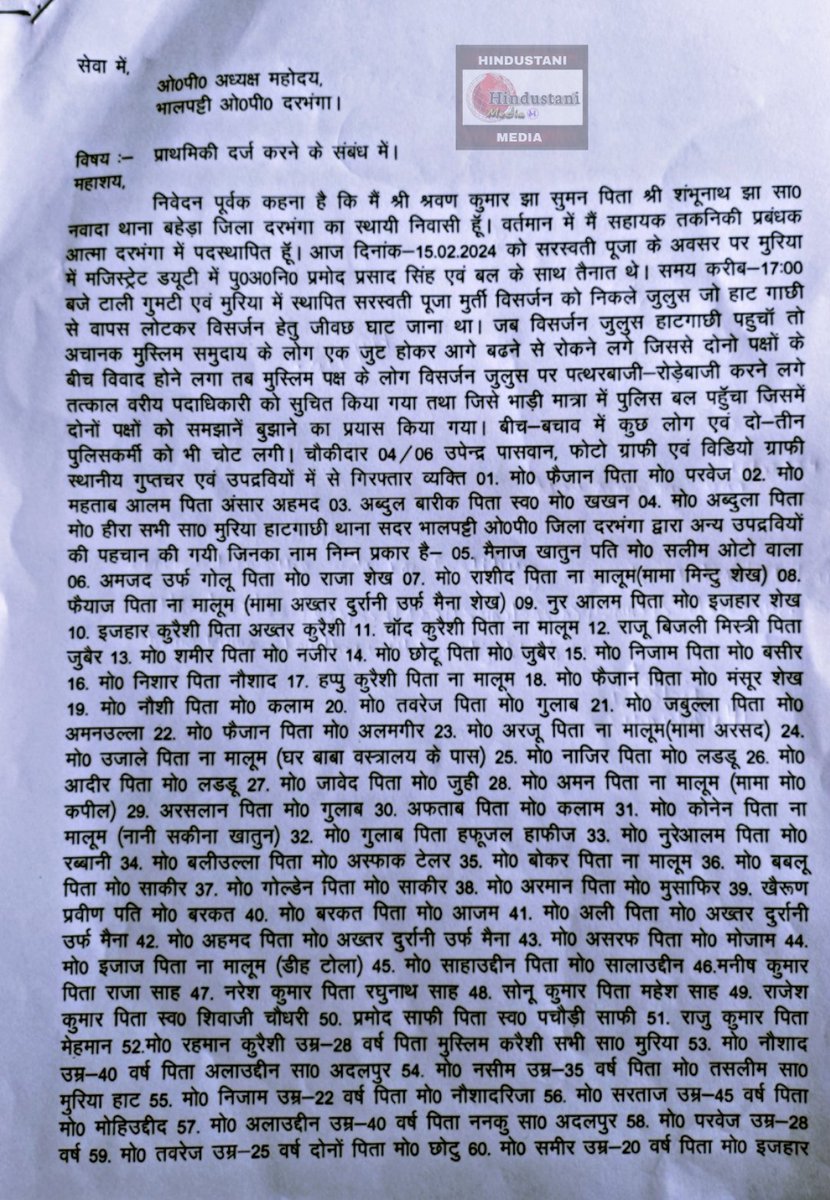 सेवा में,
ओ0पी0 अध्यक्ष महोदय,
भालपट्टी ओ0पी0 दरभंगा।
HINDUSTANI
Hindustani
Media M
MEDIA
विषय :– प्राथमिकी दर्ज करने के संबंध में।
महाशय,
निवेदन पूर्वक कहना है कि मैं श्री श्रवण कुमार झा सुमन पिता श्री शंभूनाथ झा सा0
नवादा थाना बहेड़ा जिला दरभंगा का स्थायी निवासी हूँ। वर्तमान में मैं सहायक तकनिकी प्रबंधक
आत्मा दरभंगा में पदस्थापित हूॅ। आज दिनांक–15.02.2024 को सरस्वती पूजा के अवसर पर मुरिया
में मजिस्ट्रेट डयूटी में पु0अ0नि0 प्रमोद प्रसाद सिंह एवं बल के साथ तैनात थे। समय करीब–17:00
बजे टाली गुमटी एवं मुरिया में स्थापित सरस्वती पूजा मुर्ती विसर्जन को निकले जुलुस जो हाट गाछी
से वापस लोटकर विसर्जन हेतु जीवछ घाट जाना था। जब विसर्जन जुलुस हाटगाछी पहुचॉ तो
अचानक मुस्लिम समुदाय के लोग एक जुट होकर आगे बढने से रोकने लगे जिससे दोनो पक्षों के
बीच विवाद होने लगा तब मुस्लिम पक्ष के लोग विसर्जन जुलुस पर पत्थरबाजी–रोड़ेबाजी करने लगे
तत्काल वरीय पदाधिकारी को सुचित किया गया तथा जिसे भाड़ी मात्रा में पुलिस बल पहुॅचा जिसमें
दोनों पक्षों को समझानें बुझाने का प्रयास किया गया। बीच–बचाव में कुछ लोग एवं दो–तीन
पुलिसकर्मी को भी चोट लगी। चौकीदार 04/06 उपेन्द्र पासवान, फोटो ग्राफी एवं विडियो ग्राफी
स्थानीय गुप्तचर एवं उपद्रवियों में से गिरफ्तार व्यक्ति 01. मो0 फैजान पिता मो0 परवेज 02. मो0
महताब आलम पिता अंसार अहमद 03. अब्दुल बारीक पिता स्व0 मो0 खखन 04. मो0 अब्दुला पिता
मो0 हीरा सभी सा0 मुरिया हाटगाछी थाना सदर भालपट्टी ओ0पी0 जिला दरभंगा द्वारा अन्य उपद्रवियों
की पहचान की गयी जिनका नाम निम्न प्रकार है– 05. मैनाज खातुन पति मो0 सलीम ओटो वाला
06. अमजद उर्फ गोलू पिता मो0 राजा शेख 07. मो0 राशीद पिता ना मालूम(मामा मिन्टु शेख) 08.
फैयाज पिता ना मालूम (मामा अख्तर दुर्रानी उर्फ मैना शेख) 09. नुर आलम पिता मो0 इजहार शेख
10. इजहार कुरैशी पिता अख्तर कुरैशी 11. चॉद कुरैशी पिता ना मालूम 12. राजू बिजली मिस्त्री पिता
जुबैर 13. मो0 शमीर पिता मो0 नजीर 14. मो0 छोटू पिता मो0 जुबैर 15. मो0 निजाम पिता मो0 बसीर
16. मो0 निशार पिता नौशाद 17. हप्पु कुरैशी पिता ना मालूम 18. मो0 फैजान पिता मो0 मंसूर शेख
19. मो0 नौशी पिता मो0 कलाम 20. मो0 तवरेज पिता मो0 गुलाब 21. मो0 जबुल्ला पिता मो0
अमनउल्ला 22. मो0 फैजान पिता मो0 अलमगीर 23. मो0 अरजू पिता ना मालूम(मामा अरसद) 24.
मो0 उजाले पिता ना मालूम (घर बाबा वस्त्रालय के पास) 25. मो0 नाजिर पिता मो0 लडडू 26. मो0
आदीर पिता मो0 लडडू 27. मो0 जावेद पिता मो0 जुही 28. मो0 अमन पिता ना मालूम (मामा मो0
कपील) 29. अरसलान पिता मो0 गुलाब 30. अफताब पिता मो0 कलाम 31. मो0 कोनेन पिता ना
मालूम (नानी सकीना खातुन) 32. मो0 गुलाब पिता हफूजल हाफीज 33. मो0 नुरेआलम पिता मो0
रब्बानी 34. मो0 बलीउल्ला पिता मो0 अस्फाक टेलर 35. मो0 बोकर पिता ना मालूम 36. मो0 बबलू
पिता मो0 साकीर 37. मो0 गोल्डेन पिता मो0 साकीर 38. मो0 अरमान पिता मो0 मुसाफिर 39. खैरूण
प्रवीण पति मो0 बरकत 40. मो0 बरकत पिता मो0 आजम 41. मो0 अली पिता मो0 अख्तर दुर्रानी
उर्फ मैना 42. मो0 अहमद पिता मो0 अख्तर दुर्रानी उर्फ मैना 43. मो0 असरफ पिता मो0 मोजाम 44.
मो0 इजाज पिता ना मालूम (डीह टोला) 45. मो0 साहाउद्दीन पिता मो0 सालाउद्दीन 46.मनीष कुमार
पिता राजा साह 47. नरेश कुमार पिता रघुनाथ साह 48. सोनू कुमार पिता महेश साह 49. राजेश
कुमार पिता स्व0 शिवाजी चौधरी 50. प्रमोद साफी पिता स्व0 पचौड़ी साफी 51. राजु कुमार पिता
मेहमान 52.मो0 रहमान कुरैशी उम्र–28 वर्ष पिता मुस्लिम करैशी सभी सा0 मुरिया 53. मो0 नौशाद
उम्र–40 वर्ष पिता अलाउद्दीन सा0 अदलपुर 54. मो0 नसीम उम्र–35 वर्ष पिता मो0 तसलीम सा0
मुरिया हाट 55. मो0 निजाम उम्र–22 वर्ष पिता मो0 नौशादरिजा 56. मो0 सरताज उम्र–45 वर्ष पिता
मो0 मोहिउद्दीद 57. मो0 अलाउद्दीन उम्र–40 वर्ष पिता ननकु सा0 अदलपुर 58. मो0 परवेज उम्र–28
वर्ष 59. मो0 तवरेज उम्र–25 वर्ष दोनों पिता मो0 छोटु 60. मो0 समीर उम्र–20 वर्ष पिता मो0 इजहार